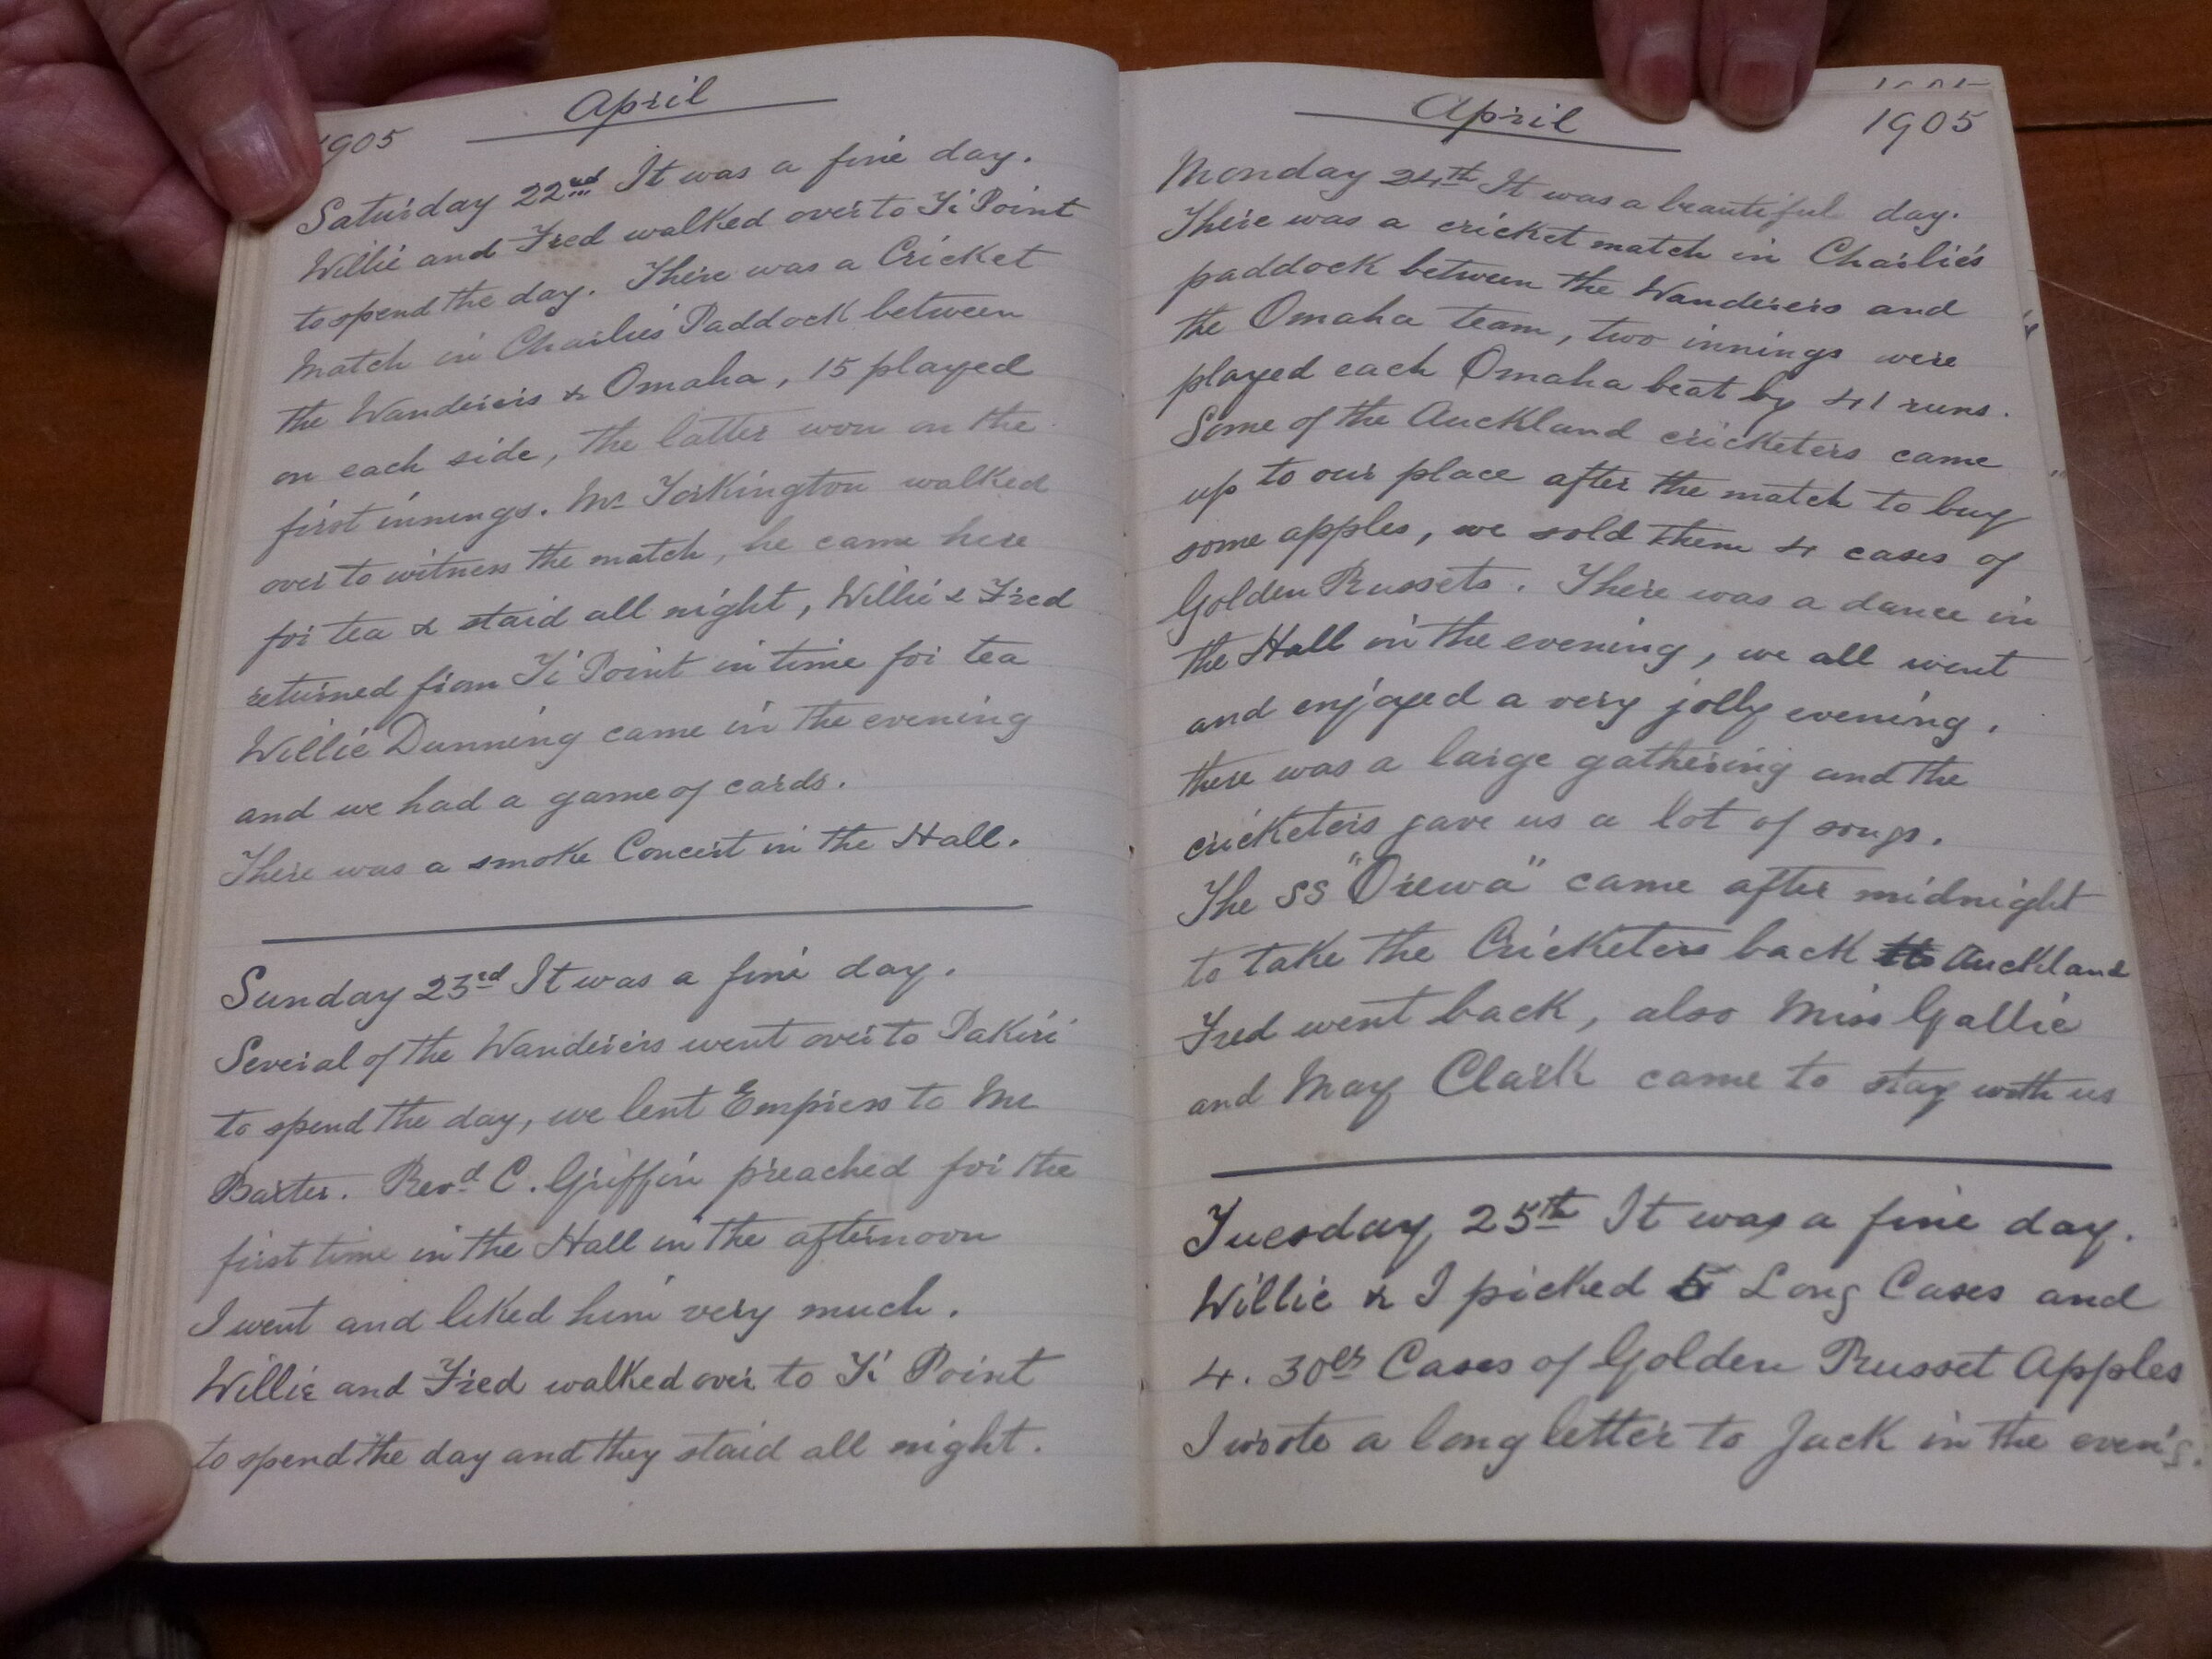 April
1905
Saturday 22nd It was a fine day.
Willie and Fred walked over to Ti Point
to spend the day. There was a Cricket
match in Charlies Paddock between
the Wanderers & Omaha, 15 played
on each side, the latter won on the
first innings. Mr Torkington walked
over to witness the match, he came here
for tea & staid all night, Willie & Fred
returned from Ti Point in time for tea
Willie Dunning came in the evening
and we had a game of cards.
There was a smoke Concert in the Hall.
Sunday 23rd It was a fine day.
Several of the Wanderers went over to Pakiri
to spend the day, we lent Empress to Mr
Baxter. Revd C. Griffin preached for the
first time in the Hall in the afternoon
I went and liked him very much.
Willie and Fred walked over to Ti Point
to spend the day and they staid all night.
April
1905
Monday 24th It was a beautiful day.
There was a cricket match in Charlie's
paddock between the Wanderers and
the Omaha team, two innings were
played each Omaha beat by 41 runs.
Some of the Auckland cricketers came
up to our place after the match to buy
some apples, we sold them 4 cases of
Golden Russets. There was a dance in
the Hall in the evening, we all went
and enjoyed a very jolly evening,
there was a large gathering and the
cricketers gave us a lot of songs.
The SS "Orewa" came after midnight
to take the Cricketers back to Auckland
Fred went back, also Miss Gallie
and May Clark came to stay with us
Tuesday 25th It was a fine day.
Willie & I picked 5 Long Cases and
4. 30lbs Cases of Golden Russet Apples
I wrote a long letter to Jack in the even'g.